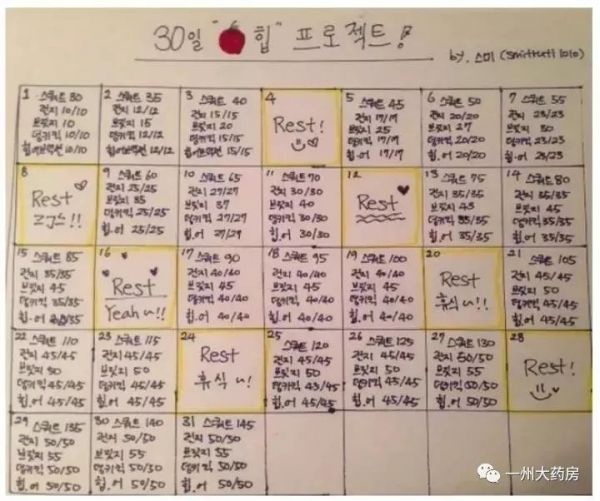 30일 "힙" 프로젝트!
by. 스미 (smitruti1010)
1 스쿼트 30
런지 10/10
브릿지 10
덩키킥 10/10
힙어브덕션 10/10
2 스쿼트 35
런지 12/12
브릿지 15
덩키킥 12/12
힙어브덕션 12/12
3 스쿼트 40
런지 15/15
브릿지 20
덩키킥 15/15
힙어브덕션 15/15
4
Rest!
5 스쿼트 45
런지 17/17
브릿지 25
덩키킥 17/17
힙.어 17/17
6 스쿼트 50
런지 20/20
브릿지 27
덩키킥 20/20
힙.어 20/20
7 스쿼트 55
런지 23/23
브릿지 30
덩키킥 23/23
힙.어 23/23
8
Rest
굿!!
9 스쿼트 60
런지 25/25
브릿지 35
덩키킥 25/25
힙.어 25/25
10 스쿼트 65
런지 27/27
브릿지 37
덩키킥 27/27
힙.어 27/27
11 스쿼트 70
런지 30/30
브릿지 40
덩키킥 30/30
힙.어 30/30
12
Rest
13 스쿼트 75
런지 33/35
브릿지 43
덩키킥 35/35
힙.어 35/35
14 스쿼트 80
런지 35/35
브릿지 45
덩키킥 35/35
힙.어 35/35
15 스쿼트 85
런지 35/35
브릿지 45
덩키킥 35/35
힙.어 35/35
16
Rest
Yeah~!!
17 스쿼트 90
런지 40/40
브릿지 45
덩키킥 40/40
힙.어 40/40
18 스쿼트 95
런지 40/40
브릿지 45
덩키킥 40/40
힙.어 40/40
19 스쿼트 100
런지 40/40
브릿지 45
덩키킥 40/40
힙.어 40/40
20
Rest
휴식~!!
21 스쿼트 105
런지 45/45
브릿지 50
덩키킥 45/45
힙.어 45/45
22 스쿼트 110
런지 45/45
브릿지 50
덩키킥 45/45
힙.어 45/45
23 스쿼트 115
런지 45/45
브릿지 50
덩키킥 45/45
힙.어 45/45
24
Rest
휴식~!
25 스쿼트 120
런지 45/45
브릿지 50
덩키킥 45/45
힙.어 45/45
26 스쿼트 125
런지 45/45
브릿지 50
덩키킥 45/45
힙.어 45/45
27 스쿼트 130
런지 50/50
브릿지 55
덩키킥 50/50
힙.어 50/50
28
Rest!
29 스쿼트 135
런지 50/50
브릿지 55
덩키킥 50/50
힙.어 50/50
30 스쿼트 140
런지 50/50
브릿지 55
덩키킥 50/50
힙.어 50/50
31 스쿼트 145
런지 50/50
브릿지 55
덩키킥 50/50
힙.어 50/50
一州大药房